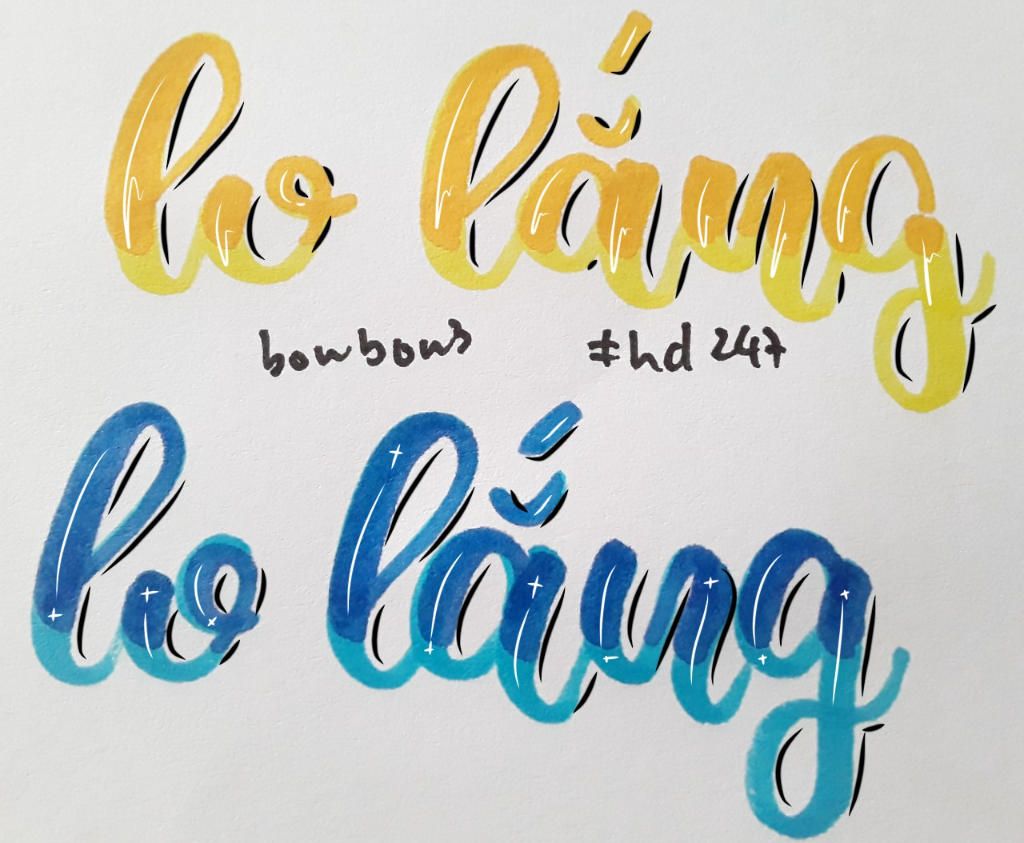 lo lắng
bowbows #hd247
lo lắng